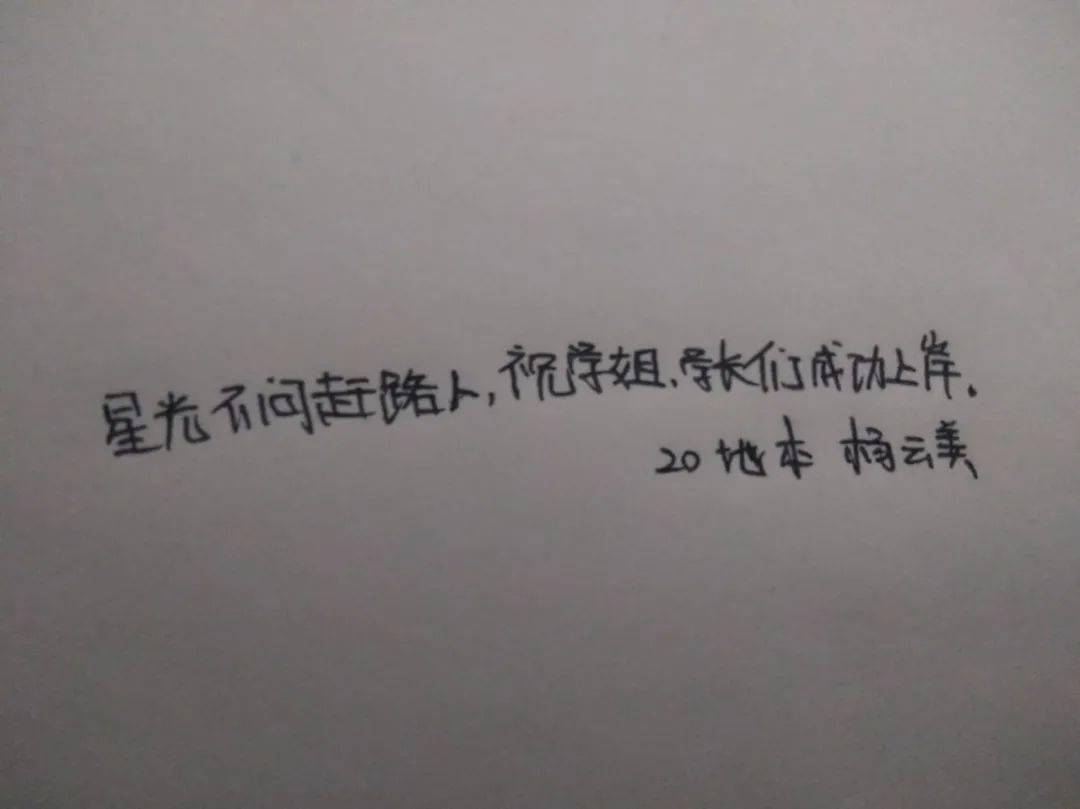 星光不问赶路人,祝学姐、学长们成功上岸.
20地本 杨云美